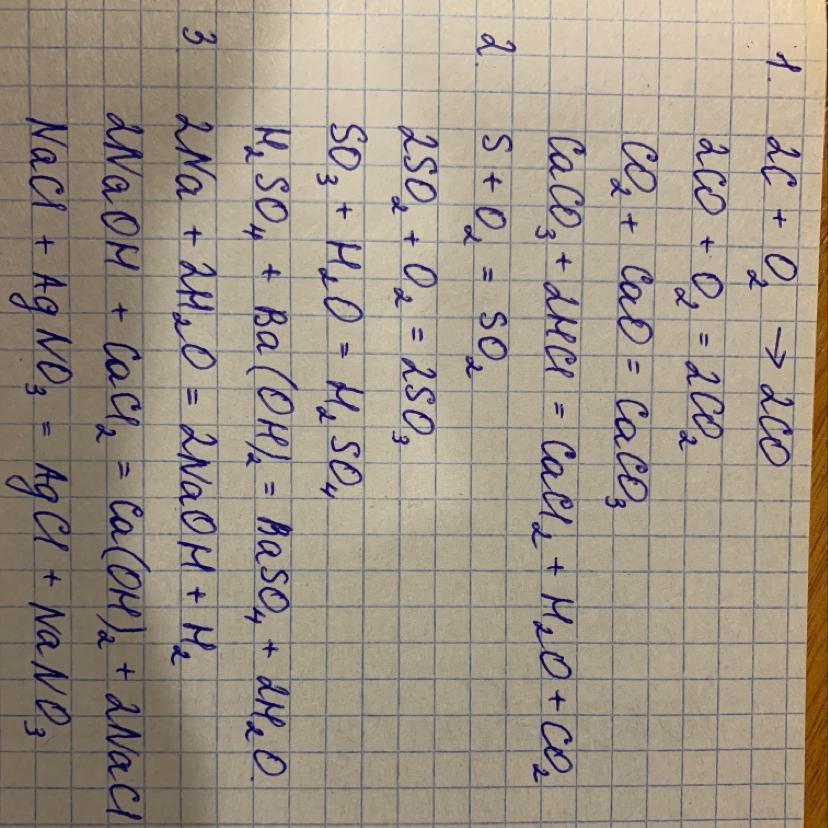 1. 2C + O₂ → 2CO
2CO + O₂ = 2CO₂
CO₂ + CaO = CaCO₃
CaCO₃ + 2HCl = CaCl₂ + H₂O + CO₂
2. S + O₂ = SO₂
2SO₂ + O₂ = 2SO₃
SO₃ + H₂O = H₂SO₄
H₂SO₄ + Ba(OH)₂ = BaSO₄ + 2H₂O.
3 2Na + 2H₂O = 2NaOH + H₂
2NaOH + CaCl₂ = Ca(OH)₂ + 2NaCl
NaCl + AgNO₃ = AgCl + NaNO₃